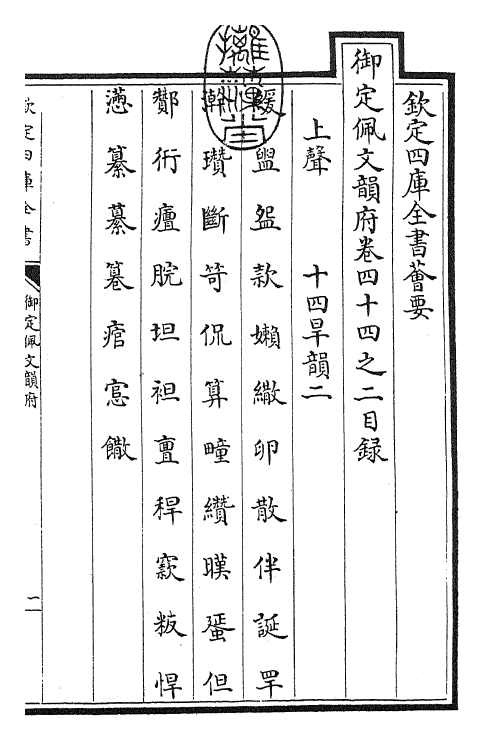 欽定四庫全書薈要
御定佩文韻府卷四十四之二目録
上聲　十四旱韻二
緩盥盌款嬾繖卵散伴誕罕
瓚斷笴侃算疃纘暵蜑但
酇衎癉脘坦袒亶稈窾粄悍
懣纂攥篹痯悹饊
欽定四庫全書
御定佩文韻府
二